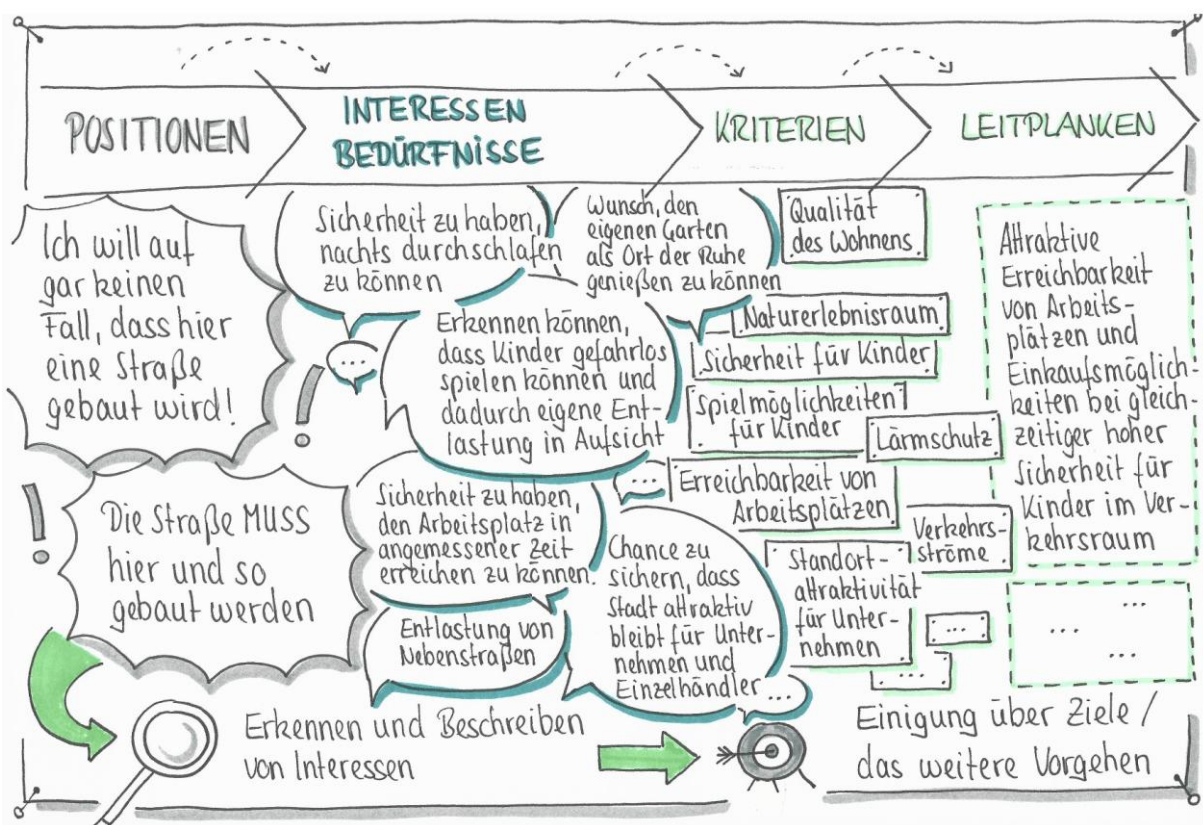 POSITIONEN
INTERESSEN
BEDÜRFNISSE
KRITERIEN
LEITPLANKEN
Ich will auf
gar keinen
Fall, dass hier
eine Straße
gebaut wird!
!
Die Straße MUSS
hier und so
gebaut werden
!
Sicherheit zu haben,
nachts durchschlafen
zu können
Wunsch, den
eigenen Garten
als Ort der Ruhe
genießen zu können
...
Erkennen können,
dass Kinder gefahrlos
spielen können und
dadurch eigene Ent-
lastung in Aufsicht
Sicherheit zu haben,
den Arbeitsplatz in
angemessener Zeit
erreichen zu können.
...
Entlastung von
Nebenstraßen
Chance zu
sichern, dass
Stadt attraktiv
bleibt für Unter-
nehmen und
Einzelhändler
...
Qualität
des Wohnens
Naturerlebnisraum
Sicherheit für Kinder
Spielmöglichkeiten
für Kinder
Lärmschutz
Erreichbarkeit von
Arbeitsplätzen
Verkehrs-
ströme
Standort-
attraktivität
für Unter-
nehmen
...
....
Attraktive
Erreichbarkeit
von Arbeits-
plätzen und
Einkaufsmöglich-
keiten bei gleich-
zeitiger hoher
Sicherheit für
Kinder im Ver-
kehrsraum
...
...
...
Erkennen und Beschreiben
von Interessen
Einigung über Ziele /
das weitere Vorgehen